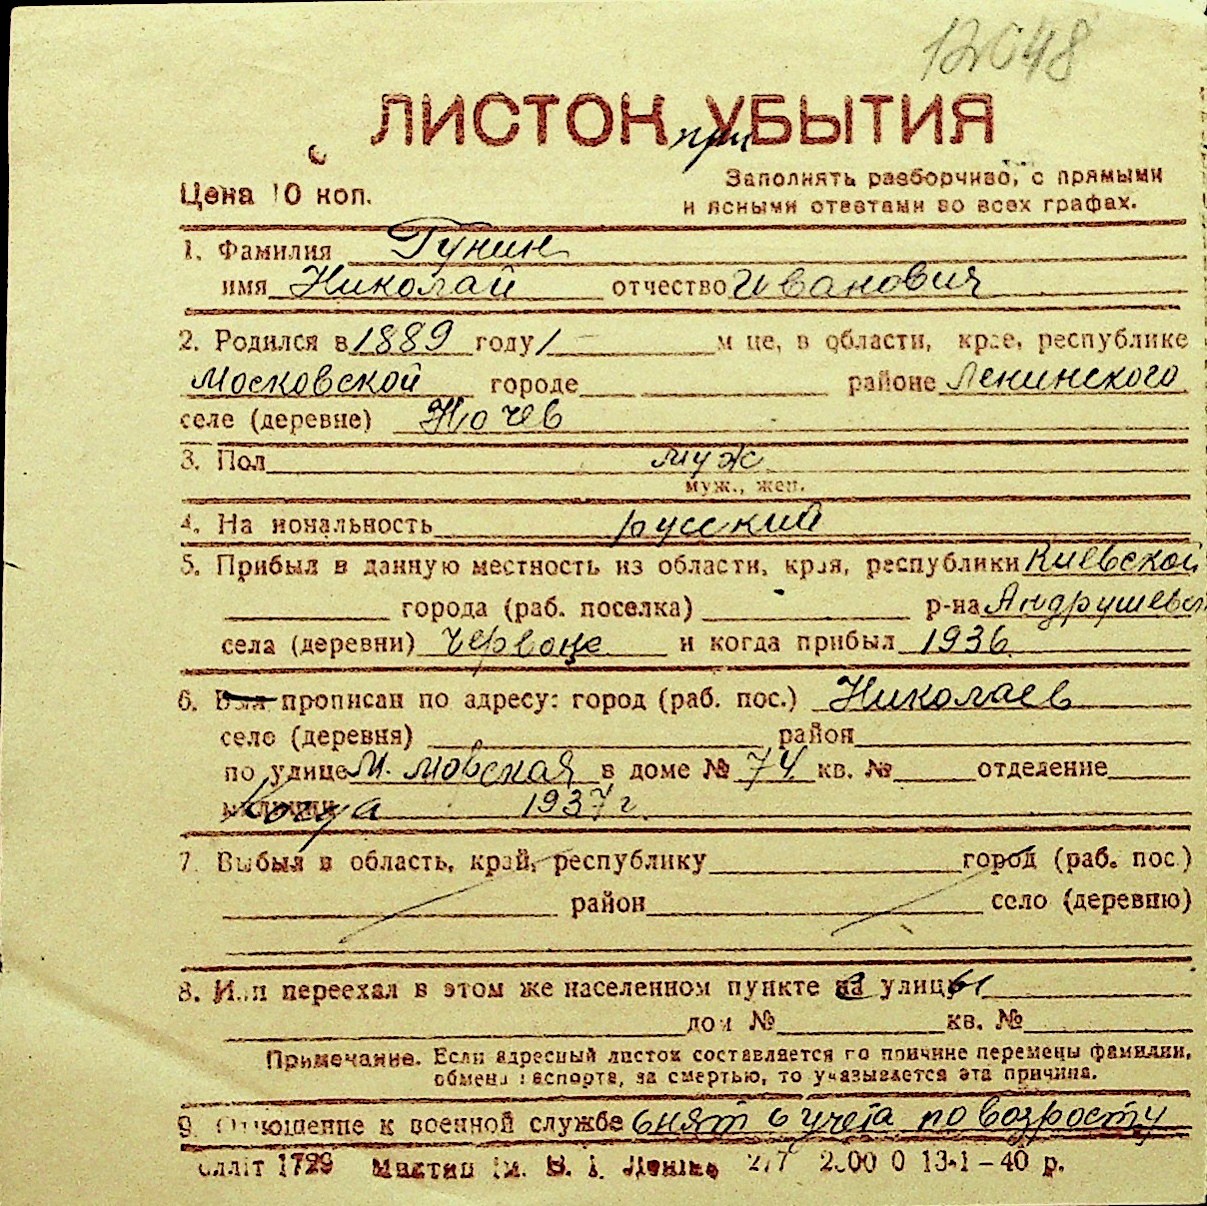 12048
ЛИСТОН при УБЫТИЯ
Цена 10 коп.
Заполнять разборчиво, с прямыми
и ясными ответами во всех графах.
1. Фамилия Гунин
имя Николай отчество Иванович
2. Родился в 1889 году 1 — м це, в области, крае, республике
Московской городе районе Ленинского
селе (деревне)
3. Пол муж
муж., жен.
4. На иональность русский
5. Прибыл в данную местность из области, края, республики Киевской
города (раб. поселка) р-на Андрушевск
села (деревни) Червоне и когда прибыл 1936
6. Был прописан по адресу: город (раб. пос.) Николаев
село (деревня) район
по улице М. Мовская в доме № 74 кв. № отделение
Когда 1937 г.
7. Выбыл в область, край, республику город (раб. пос.)
район село (деревню)
8. Или переехал в этом же населенном пункте на улицу
дом № кв. №
Примечание. Если адресный листок составляется по причине перемены фамилии,
обмена паспорта, за смертью, то указывается эта причина.
9. Отношение к военной службе снят с учета по возросту
1729 2/7 13-1-40 р.